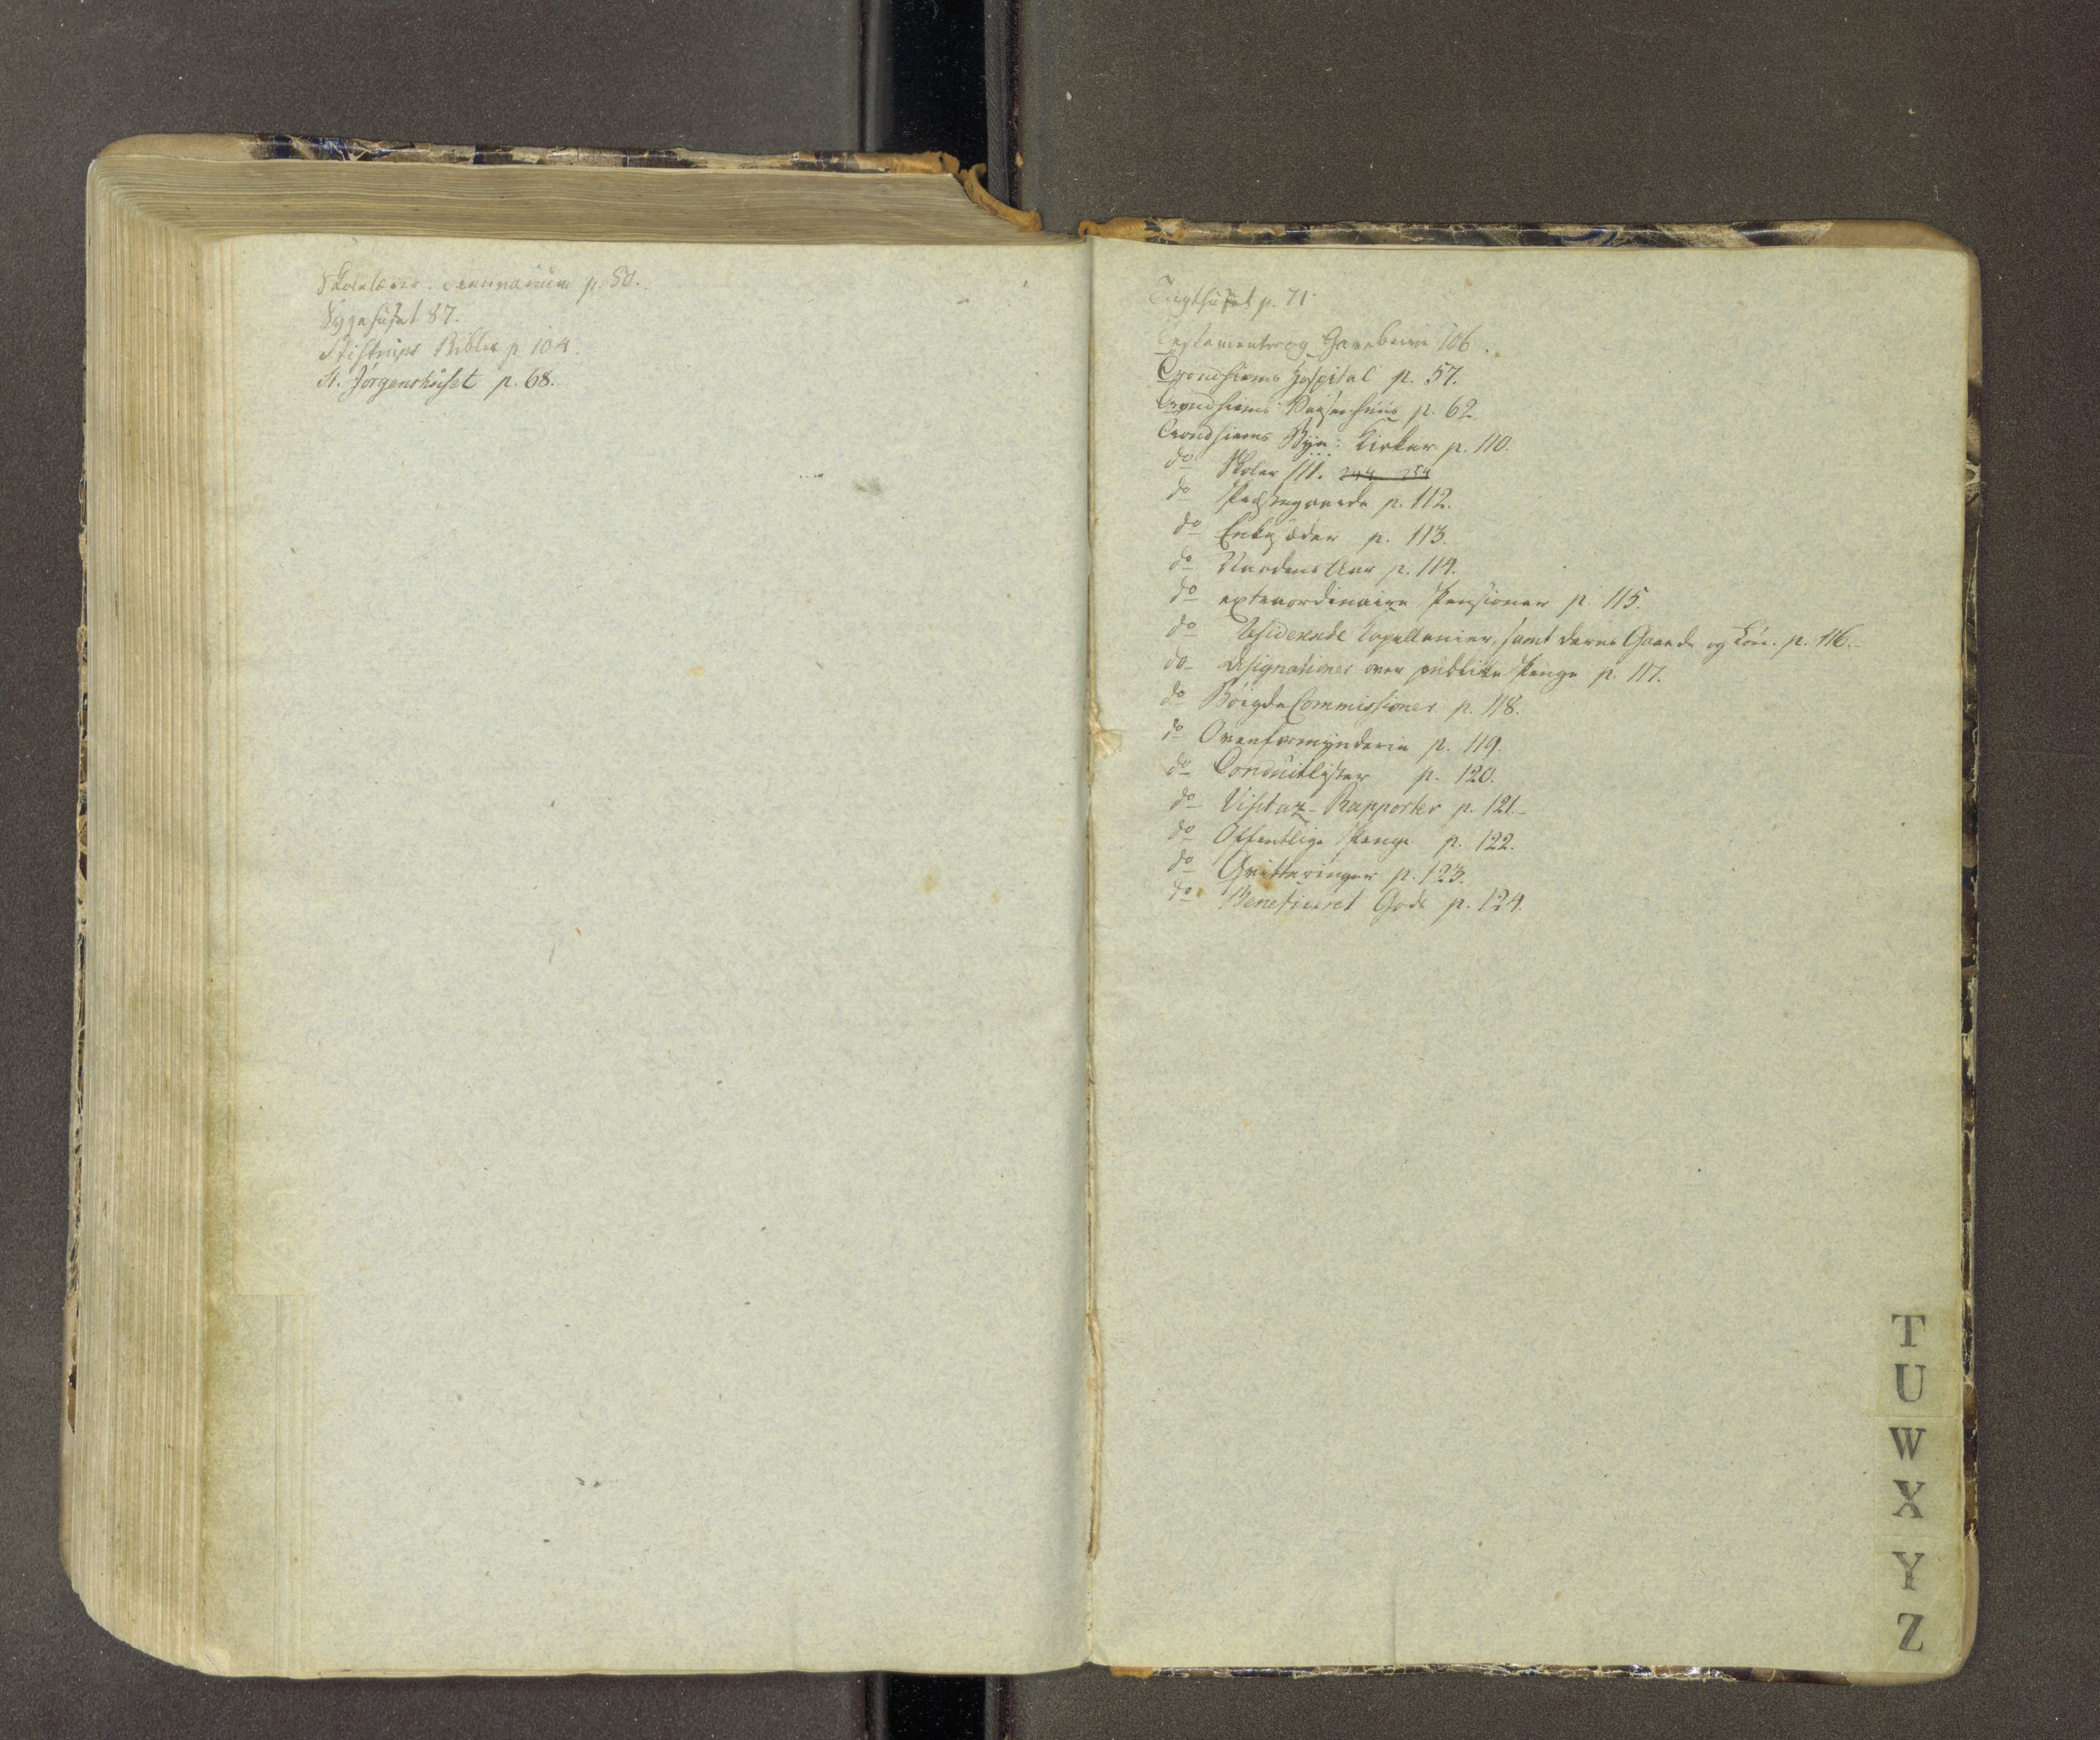 Skolelærer. Seminarium p. 50.
Sygehuset 87.
Bibler p 104.
St. Jörgenshúset p. 68.
Tugthúset p. 71
Testamenter og Gavebreve 106.
Trondhiems Hospital p. 57.
Trondhiems Vaisenhúus p. 62
Trondhiems Kirker p. 110.
do Skoler 111. 244 254
do Præstegaarde p. 112.
do Enkesæder p. 113.
do Naadens Aar p. 114.
do extraordinaire Pensioner p 115.
do Residerende Capellanier, samt deres Gaarde og p. 116.
do Designationer over publike Penge p. 117.
do Bÿigde Commissioner p. 118.
do Overformÿnderie p. 119.
do Condúitlister p. 120.
do Visitaz-Rapporter p. 121.
do Offentlige Penge p. 122.
do Qvitteringer p. 123.
do Beneficeret Gods p. 124.
T
U
W
X
Y
Z